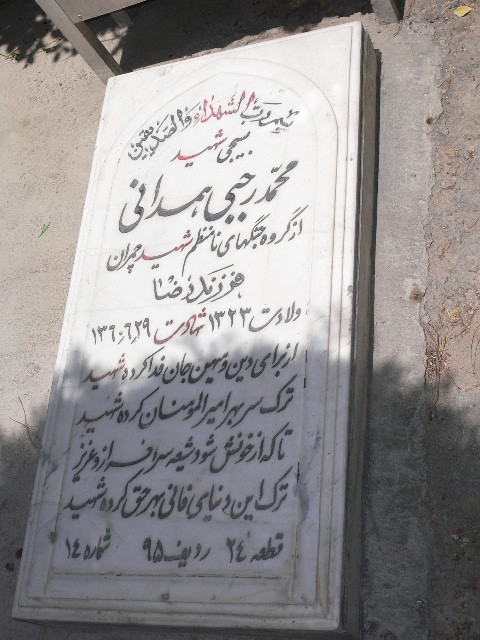 بسم رب الشهداء والصدیقین
بسیجی شهید
محمد رجبی همدانی
از گروه جنگهای نامنظم شهید چمران
فرزند رضا
ولادت ۱۳۲۳ شهادت ۱۳۶۰٫۶٫۲۹
از برای دین و میهن جان فدا کرده شهید
ترک سر بهر امیر المؤمنان کرده شهید
تا که از خونش شود شیعه سرافراز و عزیز
ترک این دنیای فانی بهر حق کرده شهید
قطعه ۲۴ ردیف ۹۵ شماره ۱۴